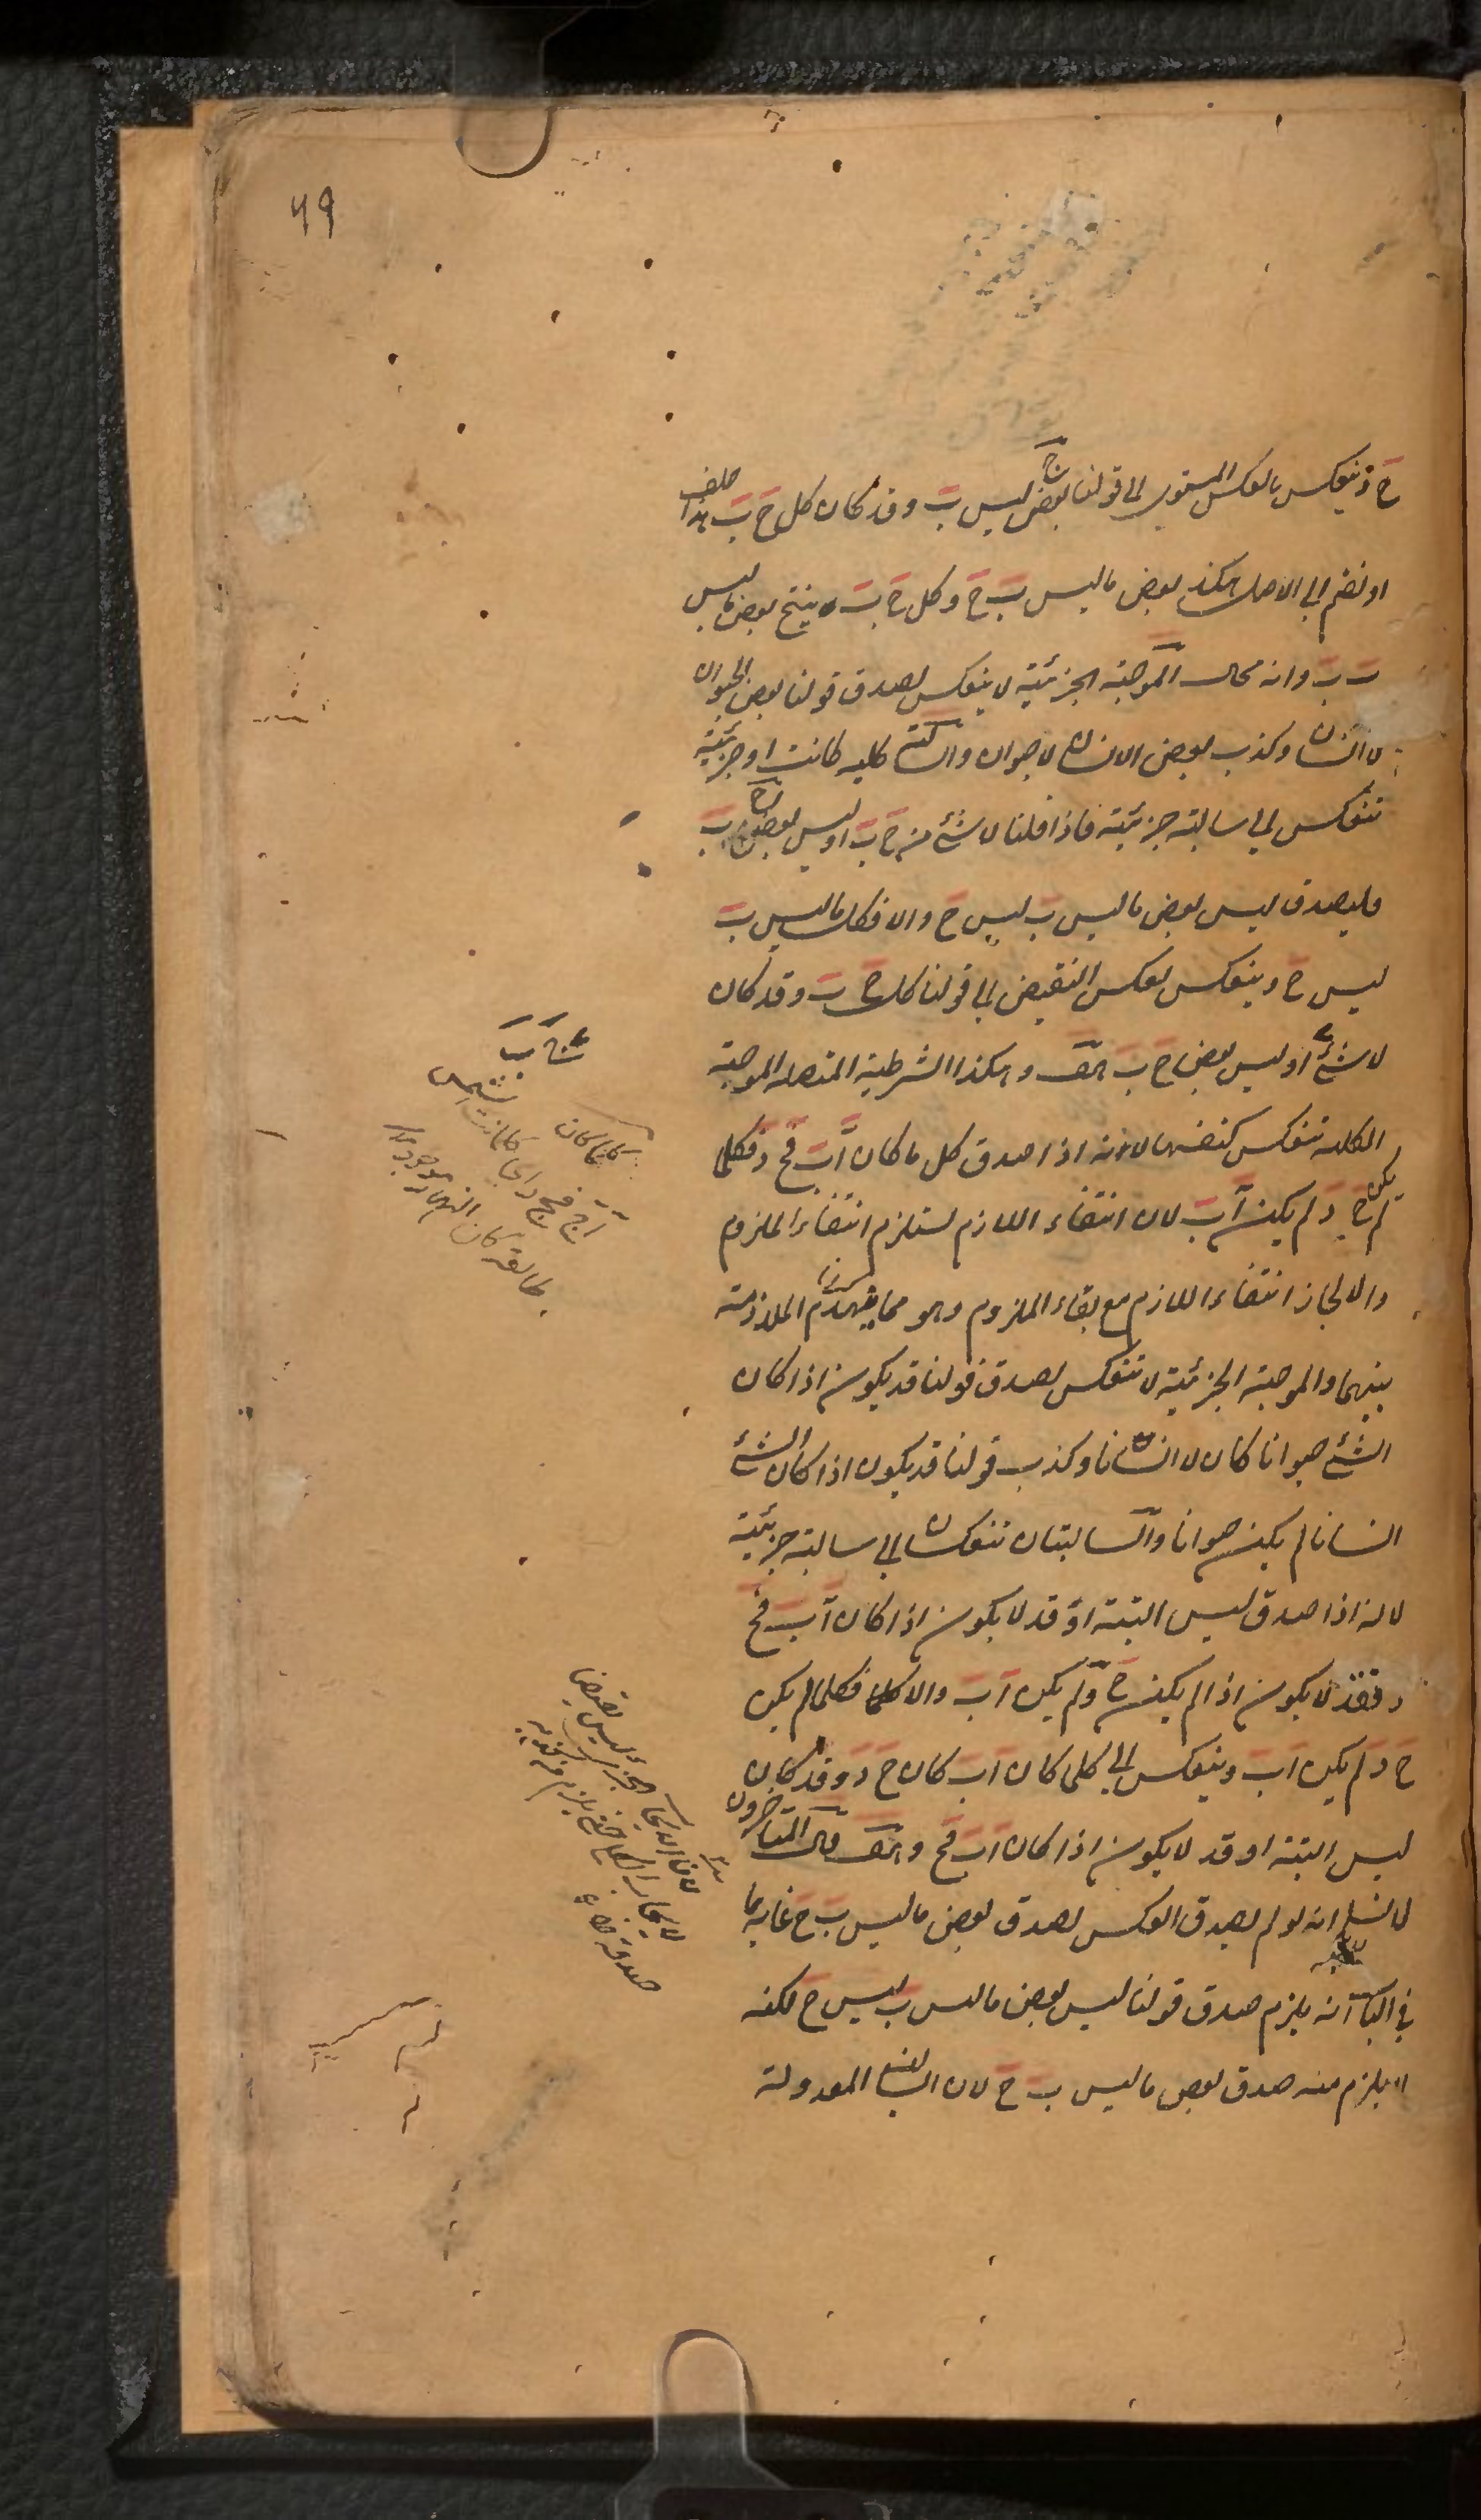 ٦٩
ج وَينعكس بالعكس المستوي الى قولنا بعض ج ليس ب وقد كان كل ج ب هذا خلف
او نضم الى الاصل هكذا بعض ما ليس ب ج وكل ج ب ينتج بعض ما ليس
ب ب وانه محال الموجبة الجزئية لا ينعكس لصدق قولنا بعض الحيوان
لا انسان وكذب بعض الانسان لا حيوان والسالبة كلية كانت او جزئية
تنعكس الى سالبة جزئية فاذا قلنا لا شئ من ج ب او ليس بعض ج ب
فليصدق ليس بعض ما ليس ب ليس ج والا فكل ما ليس ب
ليس ج وينعكس بعكس النقيض الى قولنا كل ج ب وقد كان
لا شئ او ليس بعض ج ب هف وهكذا الشرطية المتصلة الموجبة
الكلية تنعكس كنفسها لانه اذا صدق كل ما كان اَب فج د فكلما
لم يكن ج د لم يكن اَب لان انتفاء اللازم يستلزم انتفاء الملزوم
والا لجاز انتفاء اللازم مع بقاء الملزوم وهو مما ينهدم الملازمة
بينهما والموجبة الجزئية لا تنعكس لصدق قولنا قد يكون اذا كان
الشئ حيوانا كان لا انسانا وكذب قولنا قد يكون اذا كان الشئ
انسانا لم يكن حيوانا والسالبتان تنعكسان الى سالبة جزئية
لانه اذا صدق ليس البتة او قد لا يكون اذا كان اَب فج
د فقد لا يكون اذا لم يكن ج د لم يكن اَب والا فكلما لم يكن
ج د لم يكن اَب وينعكس الى كلما كان اَب كان ج د وقد كان
ليس البتة او قد لا يكون اذا كان اَب فج د هف قال المتاخرون
لا نسلم انه لو لم يصدق العكس لصدق بعض ما ليس ب ج غاية ما
في الباب انه يلزم صدق قولنا ليس بعض ما ليس ب ليس ج لكنه
لا يلزم منه صدق بعض ما ليس ب ج لان السالبة المعدولة
كلما كان
كلما كانت الشمس
طالعة كان النهار موجودا